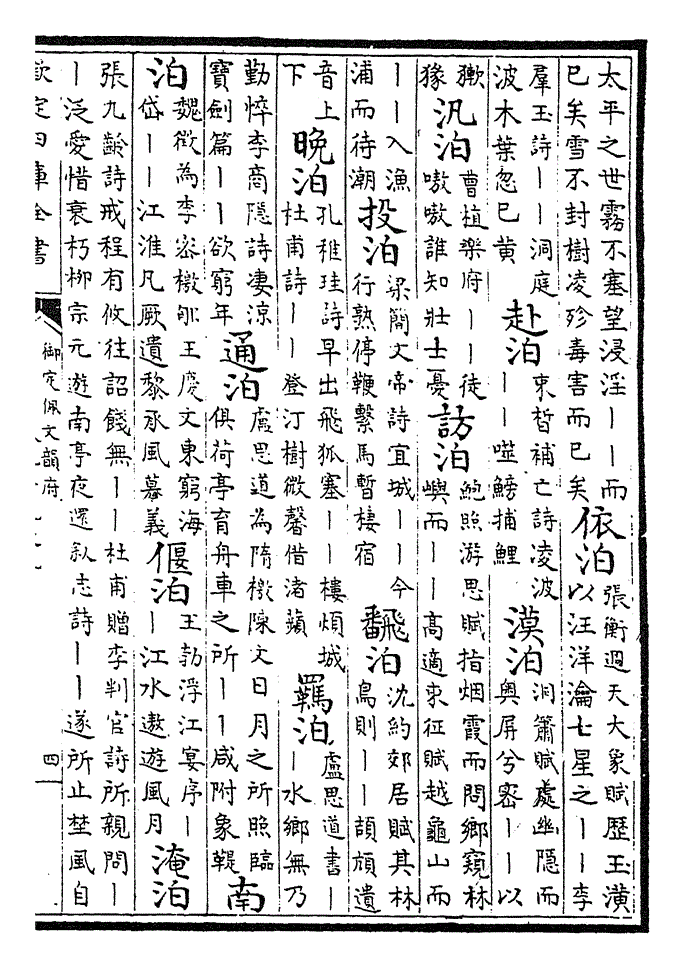 太平之世霧不塞望浸淫｜｜而
已矣雪不封樹凌殄毒害而已矣
依泊
張衡週天大象賦歷玉潢
以汪洋瀹七星之｜｜李
羣玉詩｜｜洞庭
波木葉忽已黄
赴泊
束皙補亡詩凌波
｜｜噬魴捕鯉
漠泊
洞簫賦處幽隱而
奥屏兮密｜｜以
獺
猭
汎泊
曹植樂府｜｜徒
嗷嗷誰知壯士憂
訪泊
鮑照游思賦指烟霞而問鄉窺林
嶼而｜｜高適東征賦越龜山而
｜｜入漁
浦而待潮
投泊
梁簡文帝詩宜城｜｜今
行熟停鞭繫馬暫棲宿
翻泊
沈約郊居賦其林
鳥則｜｜頡頏遺
音上
下
晚泊
孔稚珪詩早出飛狐塞｜｜樓煩城
杜甫詩｜｜登汀樹微馨借渚蘋
羈泊
盧思道書｜
｜水鄉無乃
勤悴李商隱詩凄涼
寶劍篇｜｜欲窮年
通泊
盧思道為隋檄陳文日月之所照臨
俱荷亭育舟車之所｜｜咸附象鞮
南
泊
魏徵為李密檄郇王慶文東窮海
岱｜｜江淮凡厥遺黎承風慕義
偃泊
王勃浮江宴序｜
｜江水遨遊風月
淹泊
張九齡詩戒程有攸往詔餞無｜｜杜甫贈李判官詩所親問｜
｜泛愛惜衰朽柳宗元遊南亭夜還敘志詩｜｜遂所止埜風自
欽定四庫全書
御定佩文韻府
四